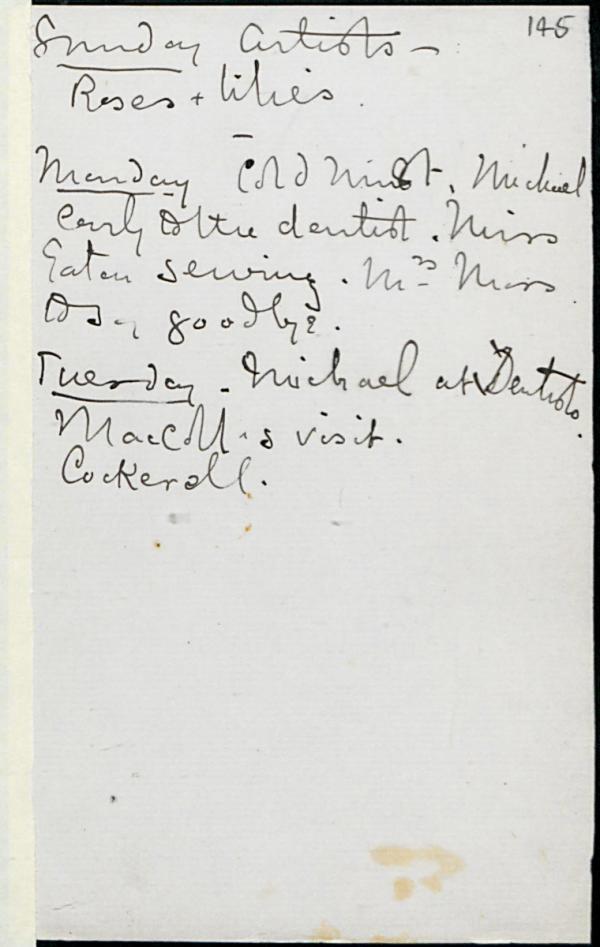 145
Sunday Artists –
Roses + lilies.
Monday Cold mist. Michael
early to the dentist. Miss
Eaton sewing. Mrs Moss
to say goodbye.
Tuesday. Michael at Dentists.
MacColl's visit.
Cockerell.